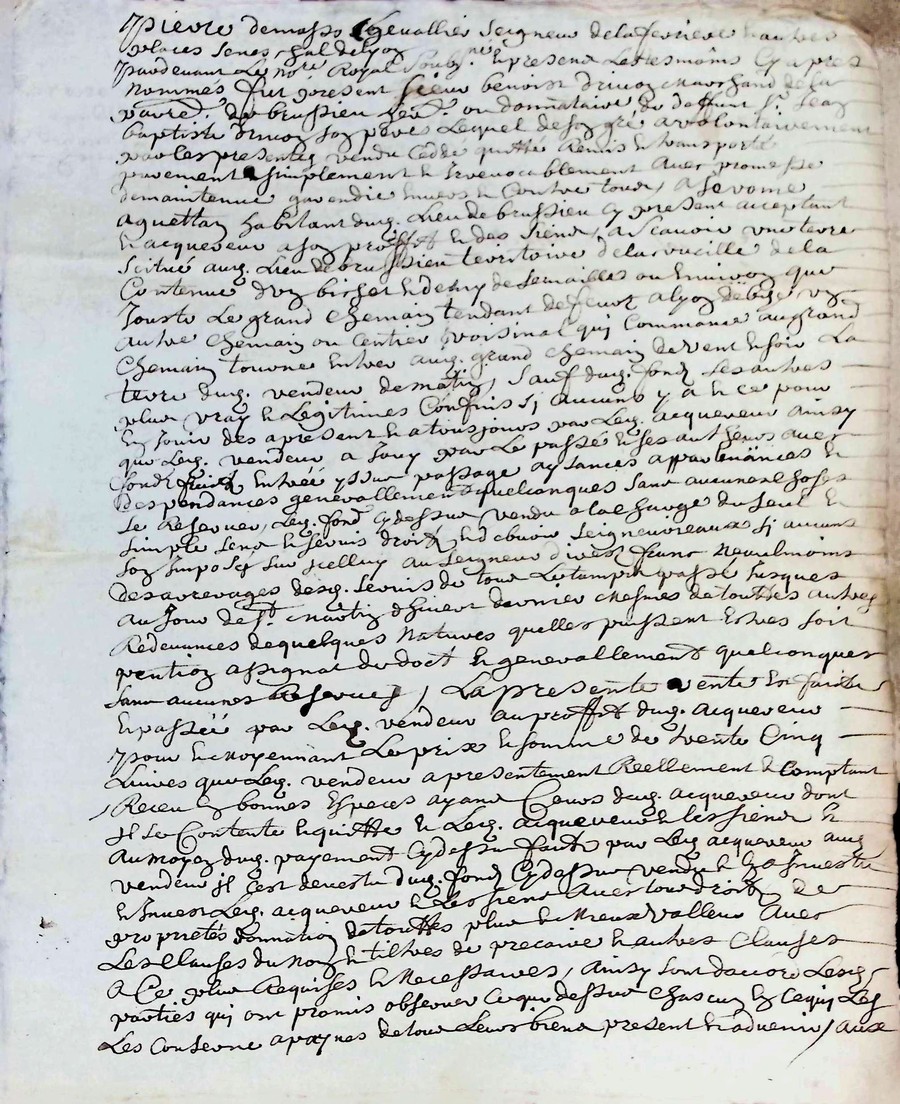 pierre demasso Chevallier Seigneur delaferriere & autres
places Senes,hal delyon
pardevant Le no.re Royal Soub.né & present Les tesmoins Cy apres
nommes fut present Sieur benoist drivon marchand de la
parre. de brussieu donnataire de deffunt S.r Jean
baptiste drivon son pere Lequel de son gré a volontairement
par les presentes vendu Ceddé quitté Remis & transporté
purement & simplement & Irrevocablement avec promesse
demaintenue garendie envers & Contre tous, a
aquettan habitant dug. Lieu de brussieu Cy present acceptant
& acquereur a son proffit & des siens, a Scavoir une terre
scitué aug. Lieu de brussieu territoire de la
Contenue d'un bichet & demy de semailles ou Environ que
Jouste Le grand chemain tendant de a lyon debize un
autre chemain ou Centier voisinal qui Commance au grand
chemain tourne Entrer aug. grand chemain de vent & soir La
terre dug. vendeur de matin, Sauf dug. fond Ses autres
plus vray & Legitimes Confins sj aucuns y a & ce pour
En Jouir des apresent & atousjours par Leg. acquereur ainsy
que Leg. vendeur a Jouy par Le passé & ses autheurs avec
fond Entréé yssue passage aysances appartenances &
despendances generallement quelconques sans aucune chose
se Reserver, Leg. fond Cy dessus vendu a la charge du seul &
simple Cens & servis droits & debvoirs seigneuriaux sj aucuns
son Imposés sur jcelluy au seigneur direct franc Neaulmoins
des arrerages desg. servis de tout Le tamps passé Jusques
au Jour de s.t martin d'hivert dernier mesmes de touttes autres
Redevances de quelques Natures quelles puissent Estres soit
pention assignat du doct & generallement quelconques
sans aucunes Reserves, La presente vente Est faicte
& passéé par Leg. vendeur au proffit dug. acquereur
pour & moyennant Le prix & somme de trente Cinq
Livres que Leg. vendeur a presentement Reellement & Comptant
Receu En bonnes Especes ayant Cours dug. acquereur dont
Jl se Contente & quitte & Leg. acquereur & les siens &
au moyen dug. payement Cy dessus faict par Leg. acquereur aug.
vendeur jl s'est devestu dug. fond Cy dessus vendu & En a Investu
& Invest Leg. acquereur & Les siens avec tous droits de
proprietés donnation de touttes plus & Mieux valleur avec
Les Clauses du Nom & tiltres de precaire & autres Clauses
a Ce plus Requises & Necessaires, ainsy sont d'accord Lesg.
parties qui ont promis observer Ce que dessus chascun En Ce qui Les
Les Conserne a paynes de tous Leurs biens present & advenir, aux